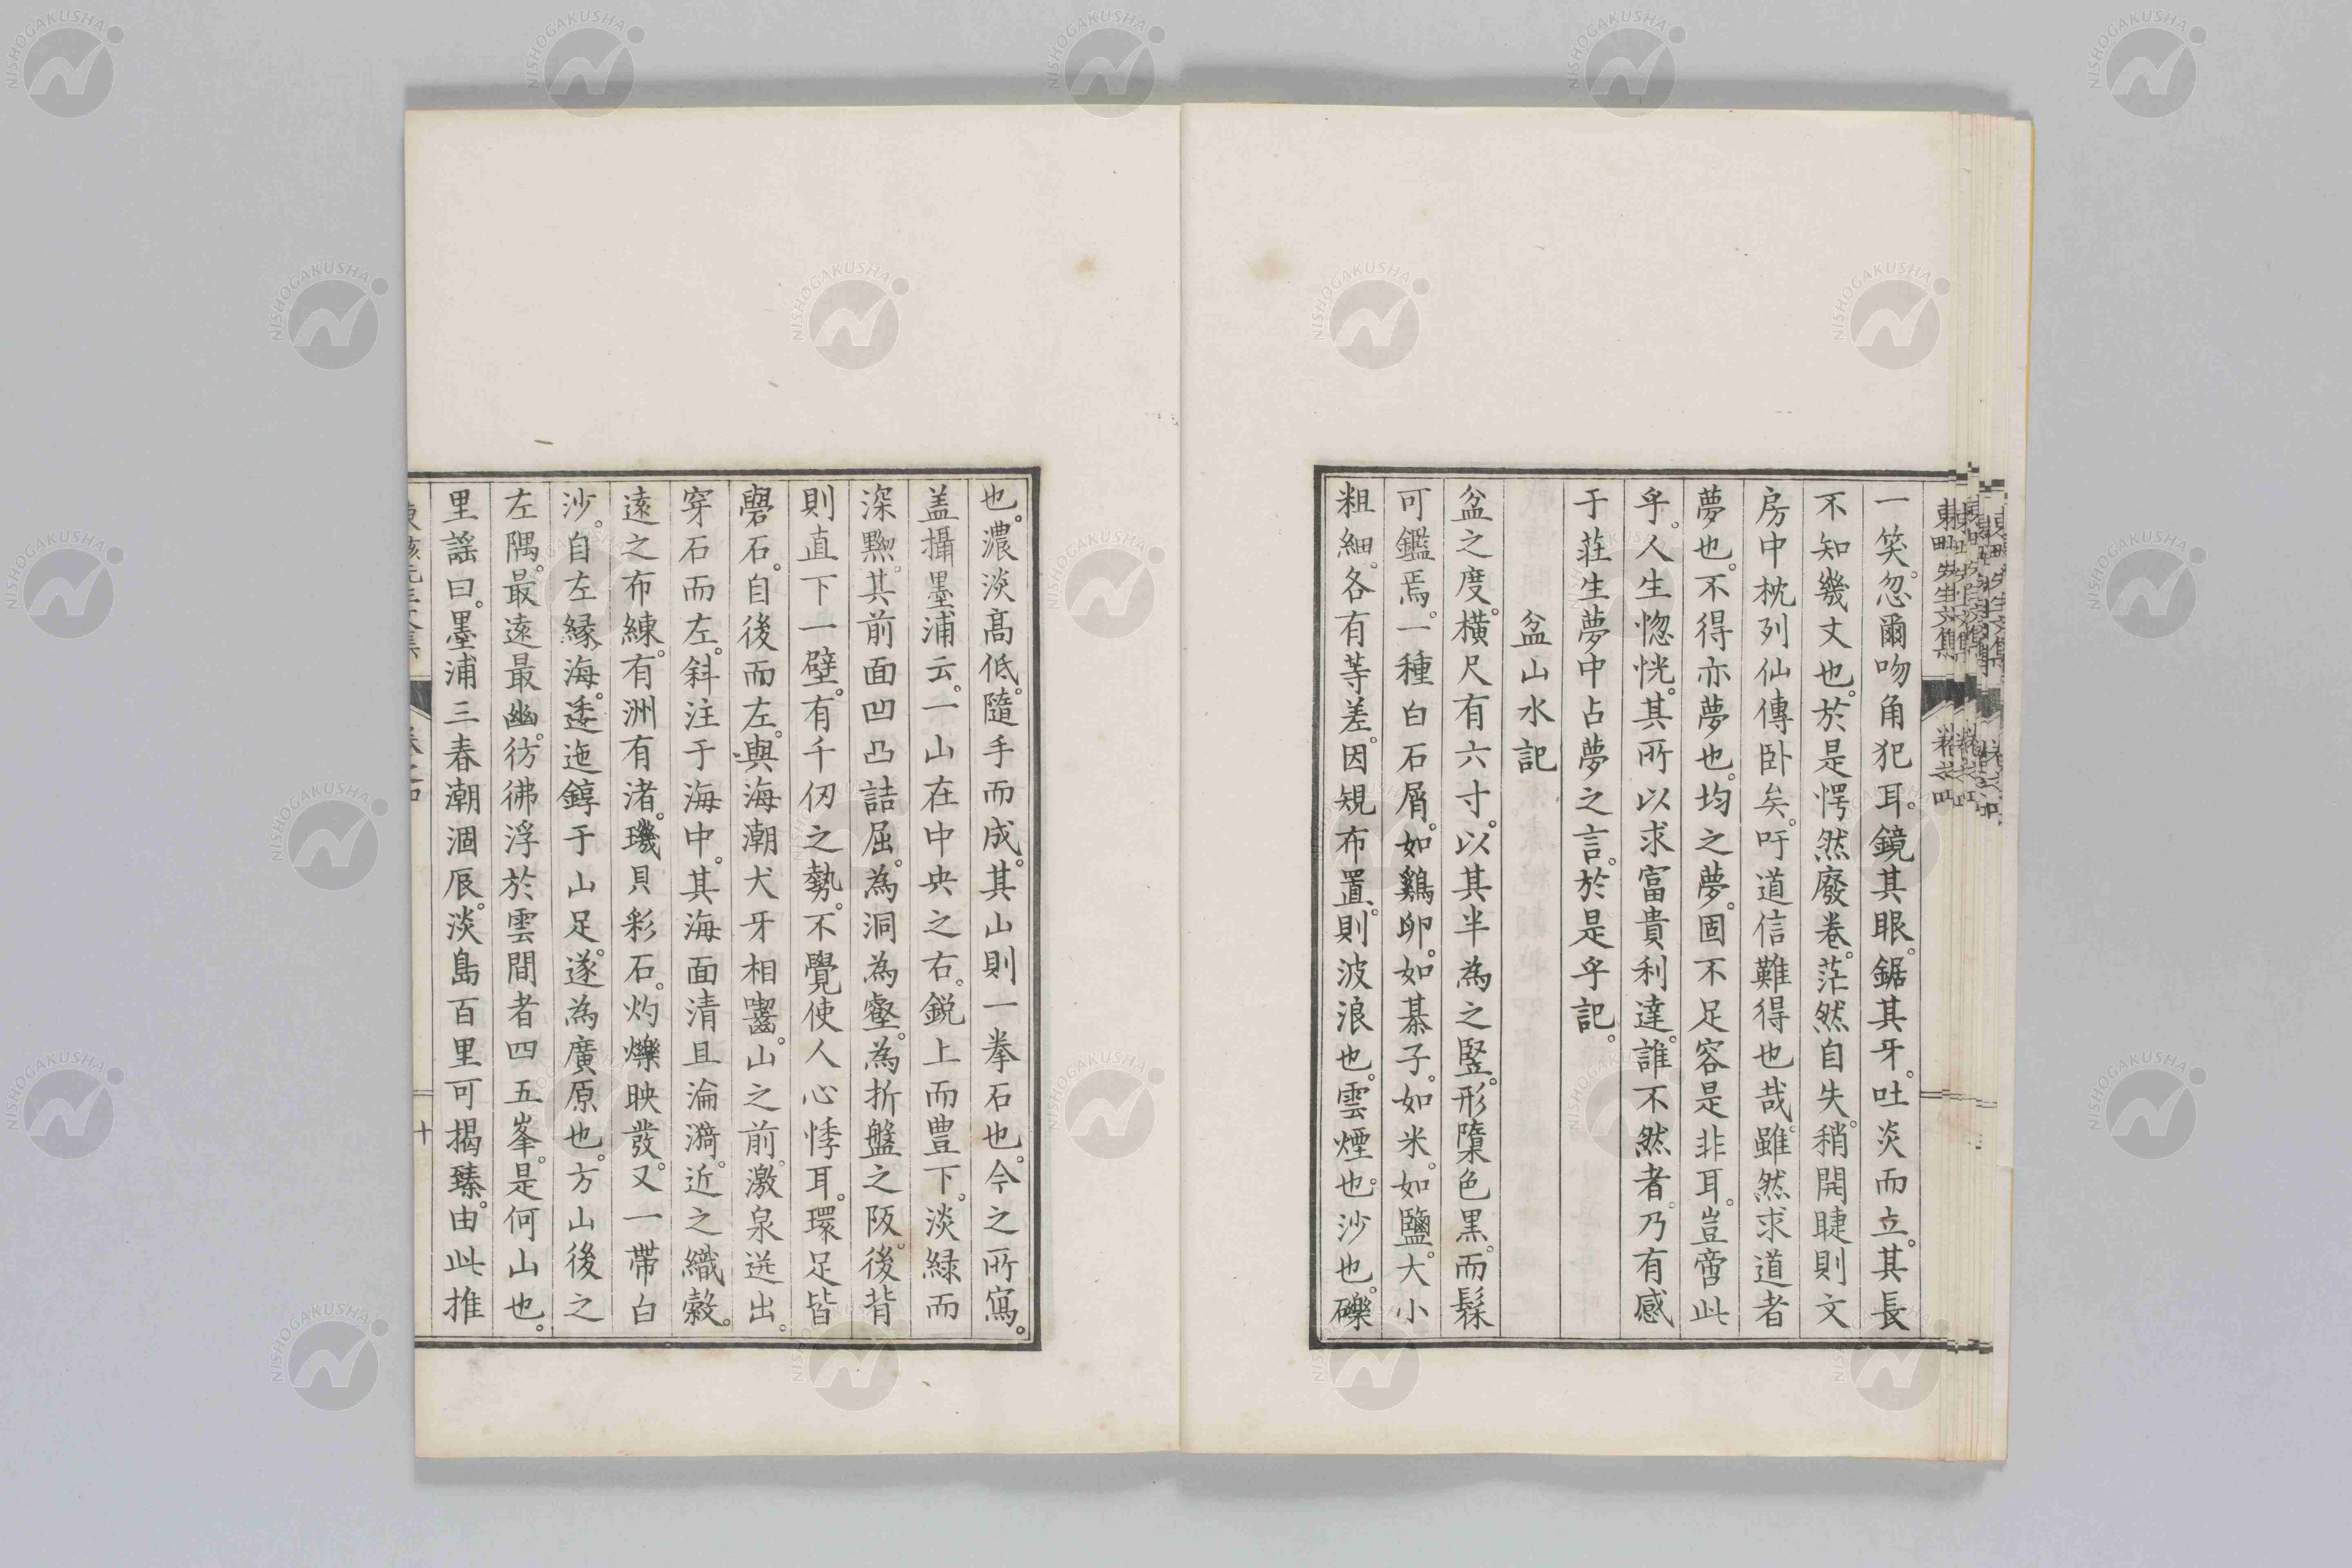 一笑。忽爾吻角犯耳。鏡其眼。鋸其牙。吐炎而立。其長
不知幾丈也。於是愕然廢卷。茫然自失。稍開睫則文
房中枕列仙傳卧矣。吁道信難得也哉。雖然求道者
夢也。不得亦夢也。均之夢。固不足容是非耳。豈啻此
乎。人生惚恍。其所以求富貴利達。誰不然者。乃有感
于莊生夢中占夢之言。於是乎記。
盆山水記
盆之度。橫尺有六寸。以其半為之竪。形隋色黑。而髹
可鑑焉。一種白石屑。如鷄卵。如棊子。如米。如鹽。大小
粗細。各有等差。因規布置。則波浪也。雲煙也。沙也。礫
也。濃淡高低。隨手而成。其山則一拳石也。今之所寫。
盖攝墨浦云。一山在中央之右。鋭上而豊下。淡緑而
深黟。其前面凹凸詰屈。為洞為壑。為折盤之阪。後背
則直下一壁。有千仞之勢。不覺使人心悸耳。環足皆
礐石。自後而左。與海潮犬牙相齧。山之前。激泉迸出。
穿石而左。斜注于海中。其海面清且淪漪。近之織縠。
遠之布練。有洲有渚。璣貝彩石。灼爍映發。又一帶白
沙。自左縁海。逶迤錞于山足。遂為廣原也。方山後之
左隅。最遠最幽。彷彿浮於雲間者四五峯。是何山也。
里謡曰。墨浦三春潮涸辰。淡島百里可揭臻。由此推
十
NISHOGAKUSHA